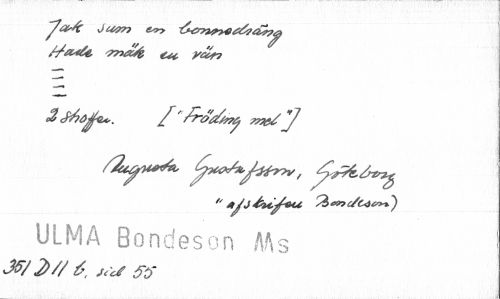 Jak sum en bonnedräng
Hade mäk en vän
2 stroffer. ["Fröding mel"]
Augusta Gustafsson, Göteborg
"afskrifen Bondeson)
ULMA Bondeson Ms
351 D II b, sid 55